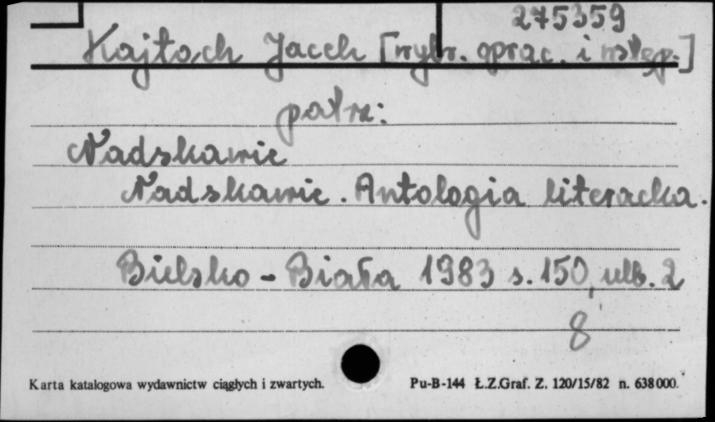 275359
Kajtoch Jacek [wybr. oprac. i wstęp.]
patrz:
Nadskawie
Nadskawie. Antologia literacka.
Bielsko-Biała 1983 s. 150, nlb. 2
8
Karta katalogowa wydawnictw ciągłych i zwartych. Pu-B-144 Ł.Z.Graf. Z. 120/15/82 n. 638000.